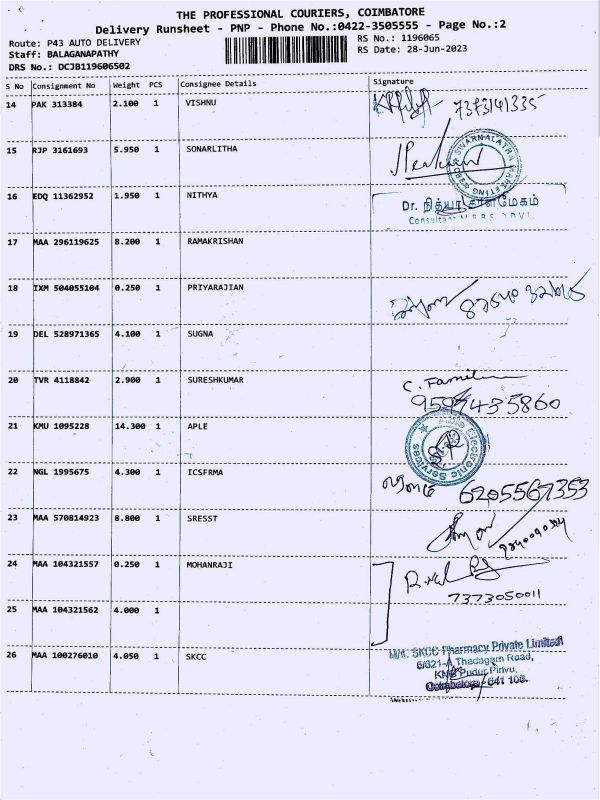 THE PROFESSIONAL COURIERS, COIMBATORE
Delivery Runsheet - PNP - Phone No.:0422-3505555 - Page No.:2
Route: P43 AUTO DELIVERY
RS No.: 1196065
Staff: BALAGANAPATHY
RS Date: 28-Jun-2023
DRS No.: DCJB119606502
S No Consignment No Weight PCS Consignee Details Signature
14 PAK 313384 2.100 1 VISHNU 7373141335
15 RJP 3161693 5.950 1 SONARLITHA
SWARNALATHA MARKETING
16 EDQ 11362952 1.950 1 NITHYA
Dr. நித்யா
17 MAA 296119625 8.200 1 RAMAKRISHAN
18 IXM 504055104 0.250 1 PRIYARAJIAN
19 DEL 528971365 4.100 1 SUGNA
20 TVR 4118842 2.900 1 SURESHKUMAR
21 KMU 1095228 14.300 1 APLE
Electronic Services
22 NGL 1995675 4.300 1 ICSFRMA 6205567353
23 MAA 570814923 8.800 1 SRESST
24 MAA 104321557 0.250 1 MOHANRAJI
7373050011
25 MAA 104321562 4.000 1
26 MAA 100276010 4.050 1 SKCC
M/s. SKCC Pharmacy Private Limited
6/621-A Thadagam Road,
KNG Pudur Pirivu,
Coimbatore - 641 108.